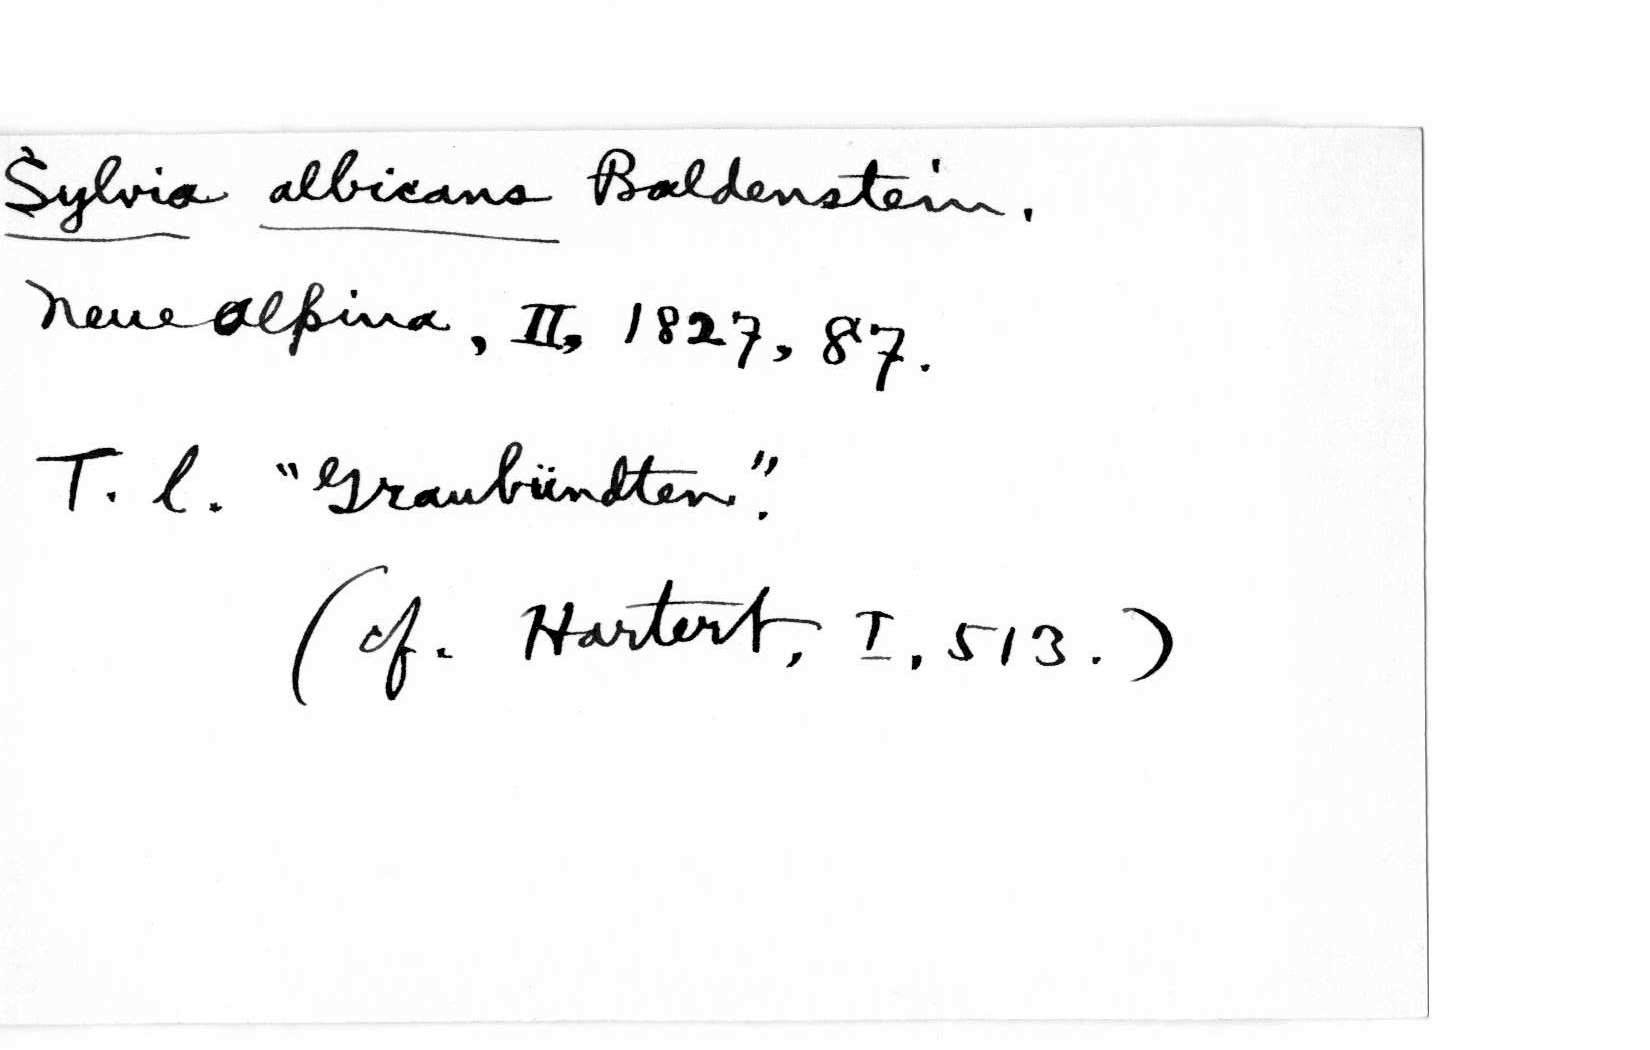 Sylvia albicans Baldenstein.
Neue Alpina, II, 1827, 87.
T. l. "Graubündten".
(cf. Hartert, I, 513.)